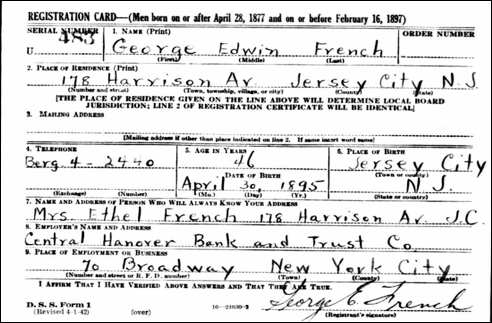 REGISTRATION CARD—(Men born on or after April 28, 1877 and on or before February 16, 1897)
SERIAL NUMBER 1. NAME (Print) ORDER NUMBER
U 483 George Edwin French
(First) (Middle) (Last)
2. PLACE OF RESIDENCE (Print)
178 Harrison Av. Jersey City N.J.
(Number and street) (Town, township, village, or city) (County) (State)
[THE PLACE OF RESIDENCE GIVEN ON THE LINE ABOVE WILL DETERMINE LOCAL BOARD
JURISDICTION; LINE 2 OF REGISTRATION CERTIFICATE WILL BE IDENTICAL]
3. MAILING ADDRESS
[Mailing address if other than place indicated on line 2. If same insert word same]
4. TELEPHONE 5. AGE IN YEARS 6. PLACE OF BIRTH
Berg 4-2440 46 Jersey City
DATE OF BIRTH (Town or county)
April 30, 1895 N.J.
(Exchange) (Number) (Mo.) (Day) (Yr.) (State or country)
7. NAME AND ADDRESS OF PERSON WHO WILL ALWAYS KNOW YOUR ADDRESS
Mrs. Ethel French 178 Harrison Av. J.C.
8. EMPLOYER'S NAME AND ADDRESS
Central Hanover Bank and Trust Co.
9. PLACE OF EMPLOYMENT OR BUSINESS
70 Broadway New York City
(Number and street or R. F. D. number) (Town) (County) (State)
I AFFIRM THAT I HAVE VERIFIED ABOVE ANSWERS AND THAT THEY ARE TRUE.
D. S. S. Form 1 George E. French
(Revised 4-1-42) (over) 16—21630-2 (Registrant's signature)